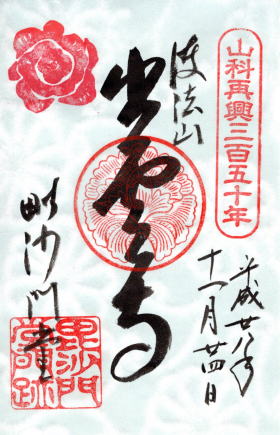 山科再興三百五十年
平成廿八年
十一月廿四日
護法山
出雲寺
毘沙門堂
毘沙門
堂門跡